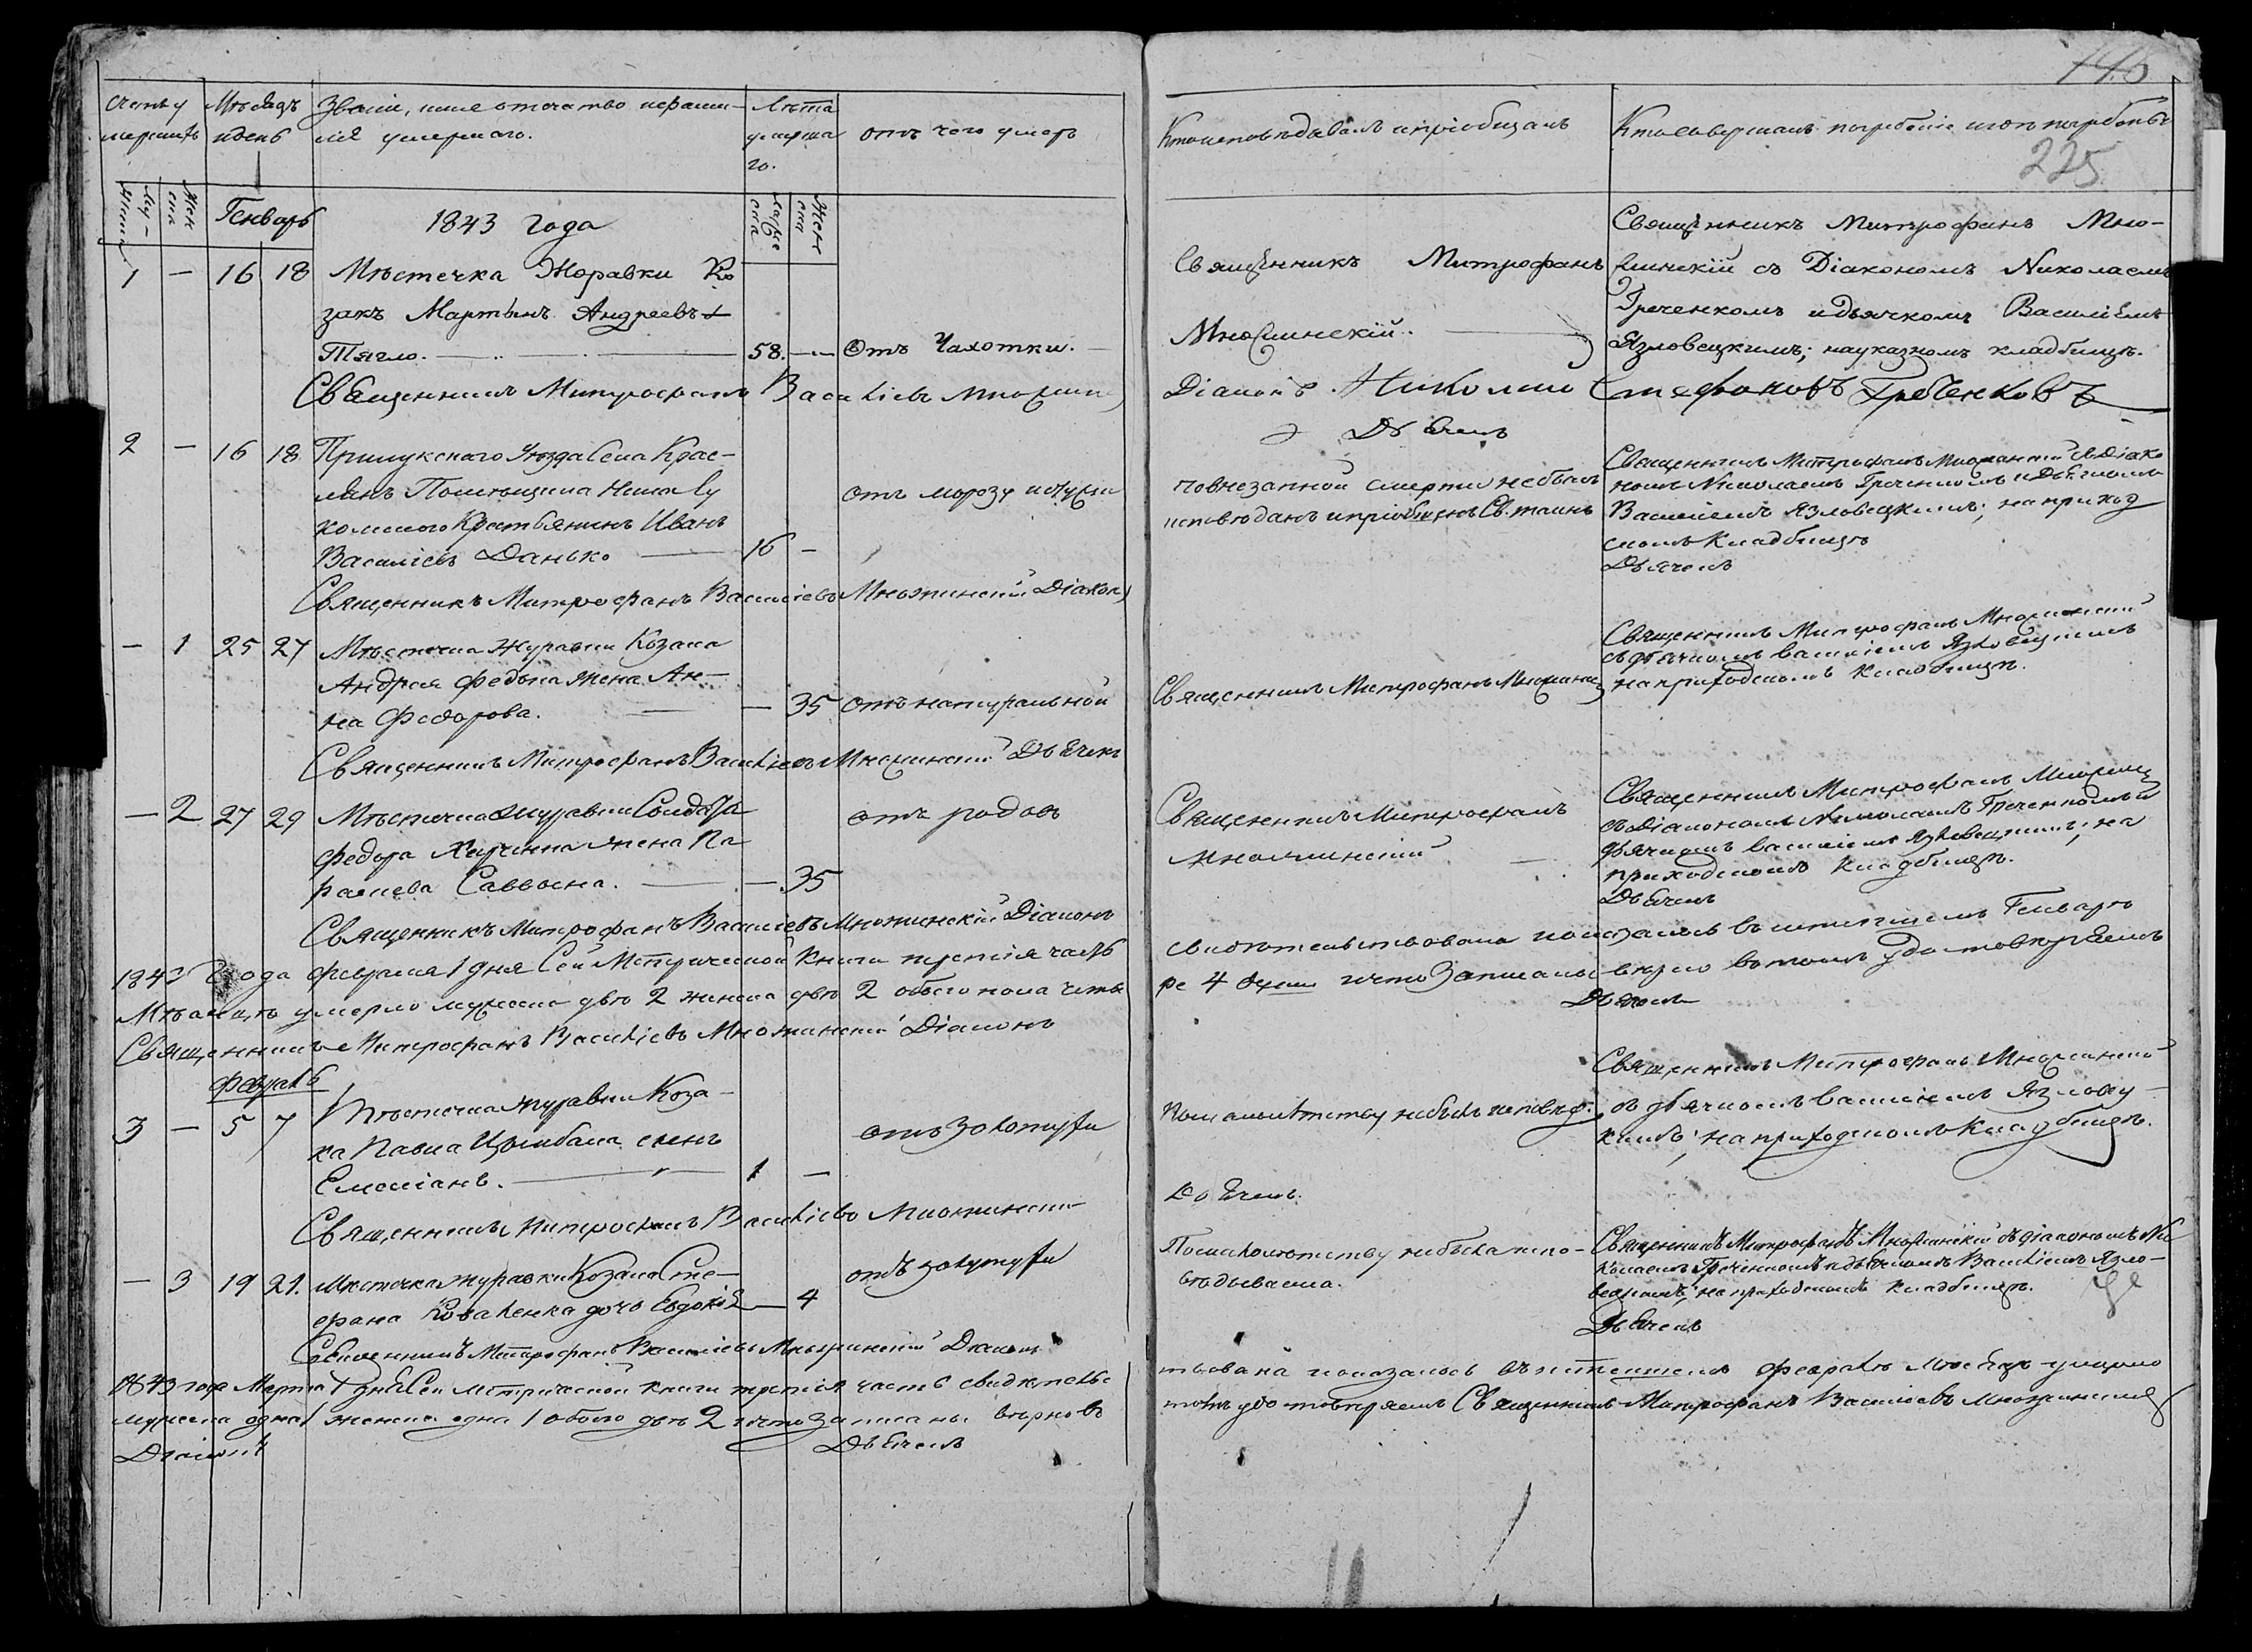 140
225
Счетъ умершихъ
Мѣсяцъ и день
Званіе, имя отечество и фамилія умершаго.
Лѣта умершаго.
отъ чего умеръ
Кто исповѣдавалъ и пріобщалъ
Кто совершалъ погребеніе и гдѣ погребены
Генварь
1843 года
1 — 16 18 Мѣстечка Жоравки Ко
закъ Мартынъ Андреевъ
Тягло. 58. — Отъ Чахотки.
Священникъ Митрофанъ
Множинскій.
Священникъ Митрофанъ Мно-
жинскій съ Діакономъ Николаемъ
Греченкомъ и дьячкомъ Василіемъ
Язловецкимъ; на указномъ кладбищѣ.
Священникъ Митрофанъ Василіевъ Множинскій
Діаконъ Николай Стефановъ Гребенковъ
Дьячекъ
2 — 16 18 Прилукскаго Уѣзда Села Крас-
лянъ Помѣщика
Крестьянинъ Иванъ
Василіевъ Данько 16 —
отъ морозу
по внезапной смерти не былъ
исповѣданъ и пріобщенъ Св. таинъ
Священникъ Митрофанъ Множинскій съ Діако
номъ Николаемъ Греченкомъ и Дьячкомъ
Василіемъ Язловецкимъ; на приход
скомъ Кладбищѣ
Дьячекъ
Священникъ Митрофанъ Василіевъ Множинскій Діаконъ
— 1 25 27 Мѣстечка Журавки Козака
Андрея Федька жена Ан-
на Федорова. — 35 отъ натуральной
Священникъ Митрофанъ Множинскій
Священникъ Митрофанъ Множинскій
съ дьячкомъ Василіемъ Язловецкимъ
на приходскомъ кладбищѣ.
Священникъ Митрофанъ Василіевъ Множинскій Дьячекъ
— 2 27 29 Мѣстечка Журавки Солдата
Федора жена Па
раскева Саввовна. — 35
отъ родовъ
Священникъ Митрофанъ
Множинскій
Священникъ Митрофанъ Множинскій
съ Діакономъ Николаемъ Греченкомъ и
Дьячкомъ Василіемъ Язловецкимъ; на
приходскомъ Кладбищѣ.
Дьячекъ
Священникъ Митрофанъ Василіевъ Множинскій Діаконъ
1843 Года февраля 1 дня Сей Метрической Книги третія часть
свидѣтельствована показалось въ истекшемъ Генварѣ
Мѣсяцѣ умерло мужеска двѣ 2 женска двѣ 2 обоего пола четы
ре 4 души и что записаны вѣрно въ томъ удостовѣряемъ
Священникъ Митрофанъ Василіевъ Множинскій Діаконъ
Дьячекъ
февраль
3 — 5 7 Мѣстечка Журавки Коза-
ка Павла Цымбала сынъ
Емеліанъ. 1 —
отъ золотухи
По малолѣтству не былъ исповѣд.
Священникъ Митрофанъ Множинскій
съ дьячкомъ Василіемъ Язловец-
кимъ; на приходскомъ Кладбищѣ.
Священникъ Митрофанъ Василіевъ Множинскій
Дьячекъ.
— 3 19 21. Мѣстечка Журавки Козака Сте-
фана Коваленка дочь Евдокія — 4
отъ золотухи
По малолѣтству не была испо-
вѣдываема.
Священникъ Митрофанъ Множинскій съ діакономъ Ни
колаемъ Греченкомъ и дьячкомъ Василіемъ Язло-
вецкимъ; на приходскомъ кладбищѣ.
Дьячекъ
Священникъ Митрофанъ Василіевъ Множинскій Діаконъ
1843 года Марта 1 дня Сей метрической книги третія часть свидѣтельс
твована показалось въ истекшемъ февралѣ мѣсяцѣ умерло
мужеска одна 1 женска одна 1 обоего двѣ 2 и что записаны вѣрно въ
томъ удостовѣряемъ Священникъ Митрофанъ Василіевъ Множинскій
Діаконъ
Дьячекъ